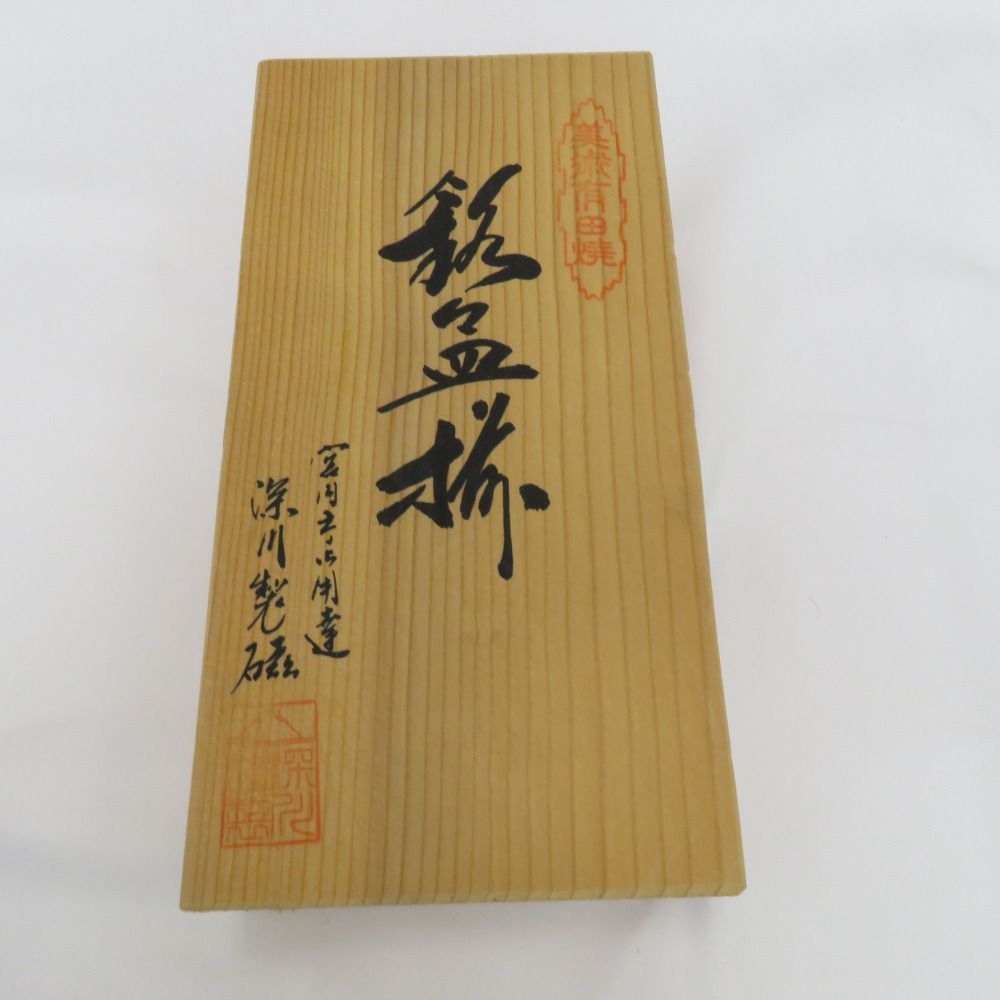 美術有田燒
銘皿揃
宮内庁御用達
深川製磁